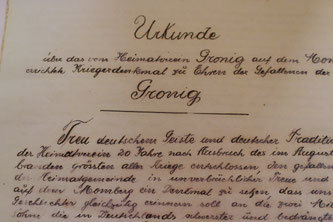 Urkunde
über das vom Heimatverein Gronig auf dem Mom
errichtete Kriegerdenkmal zu Ehren der Gefallenen der
Gronig
Treu deutschem Geiste und deutscher Tradition
der Heimatverein 20 Jahre nach Ausbruch des im August
banden grössten aller Kriege entschlossen den gefallenen
der Heimatgemeinde, in unverbrüchlicher Treue und
auf dem Momberg ein Denkmal zu setzen das uns
Geschlechter gleichzeitig erinnern soll an die zwei
söhne die in Deutschlands schwerster und